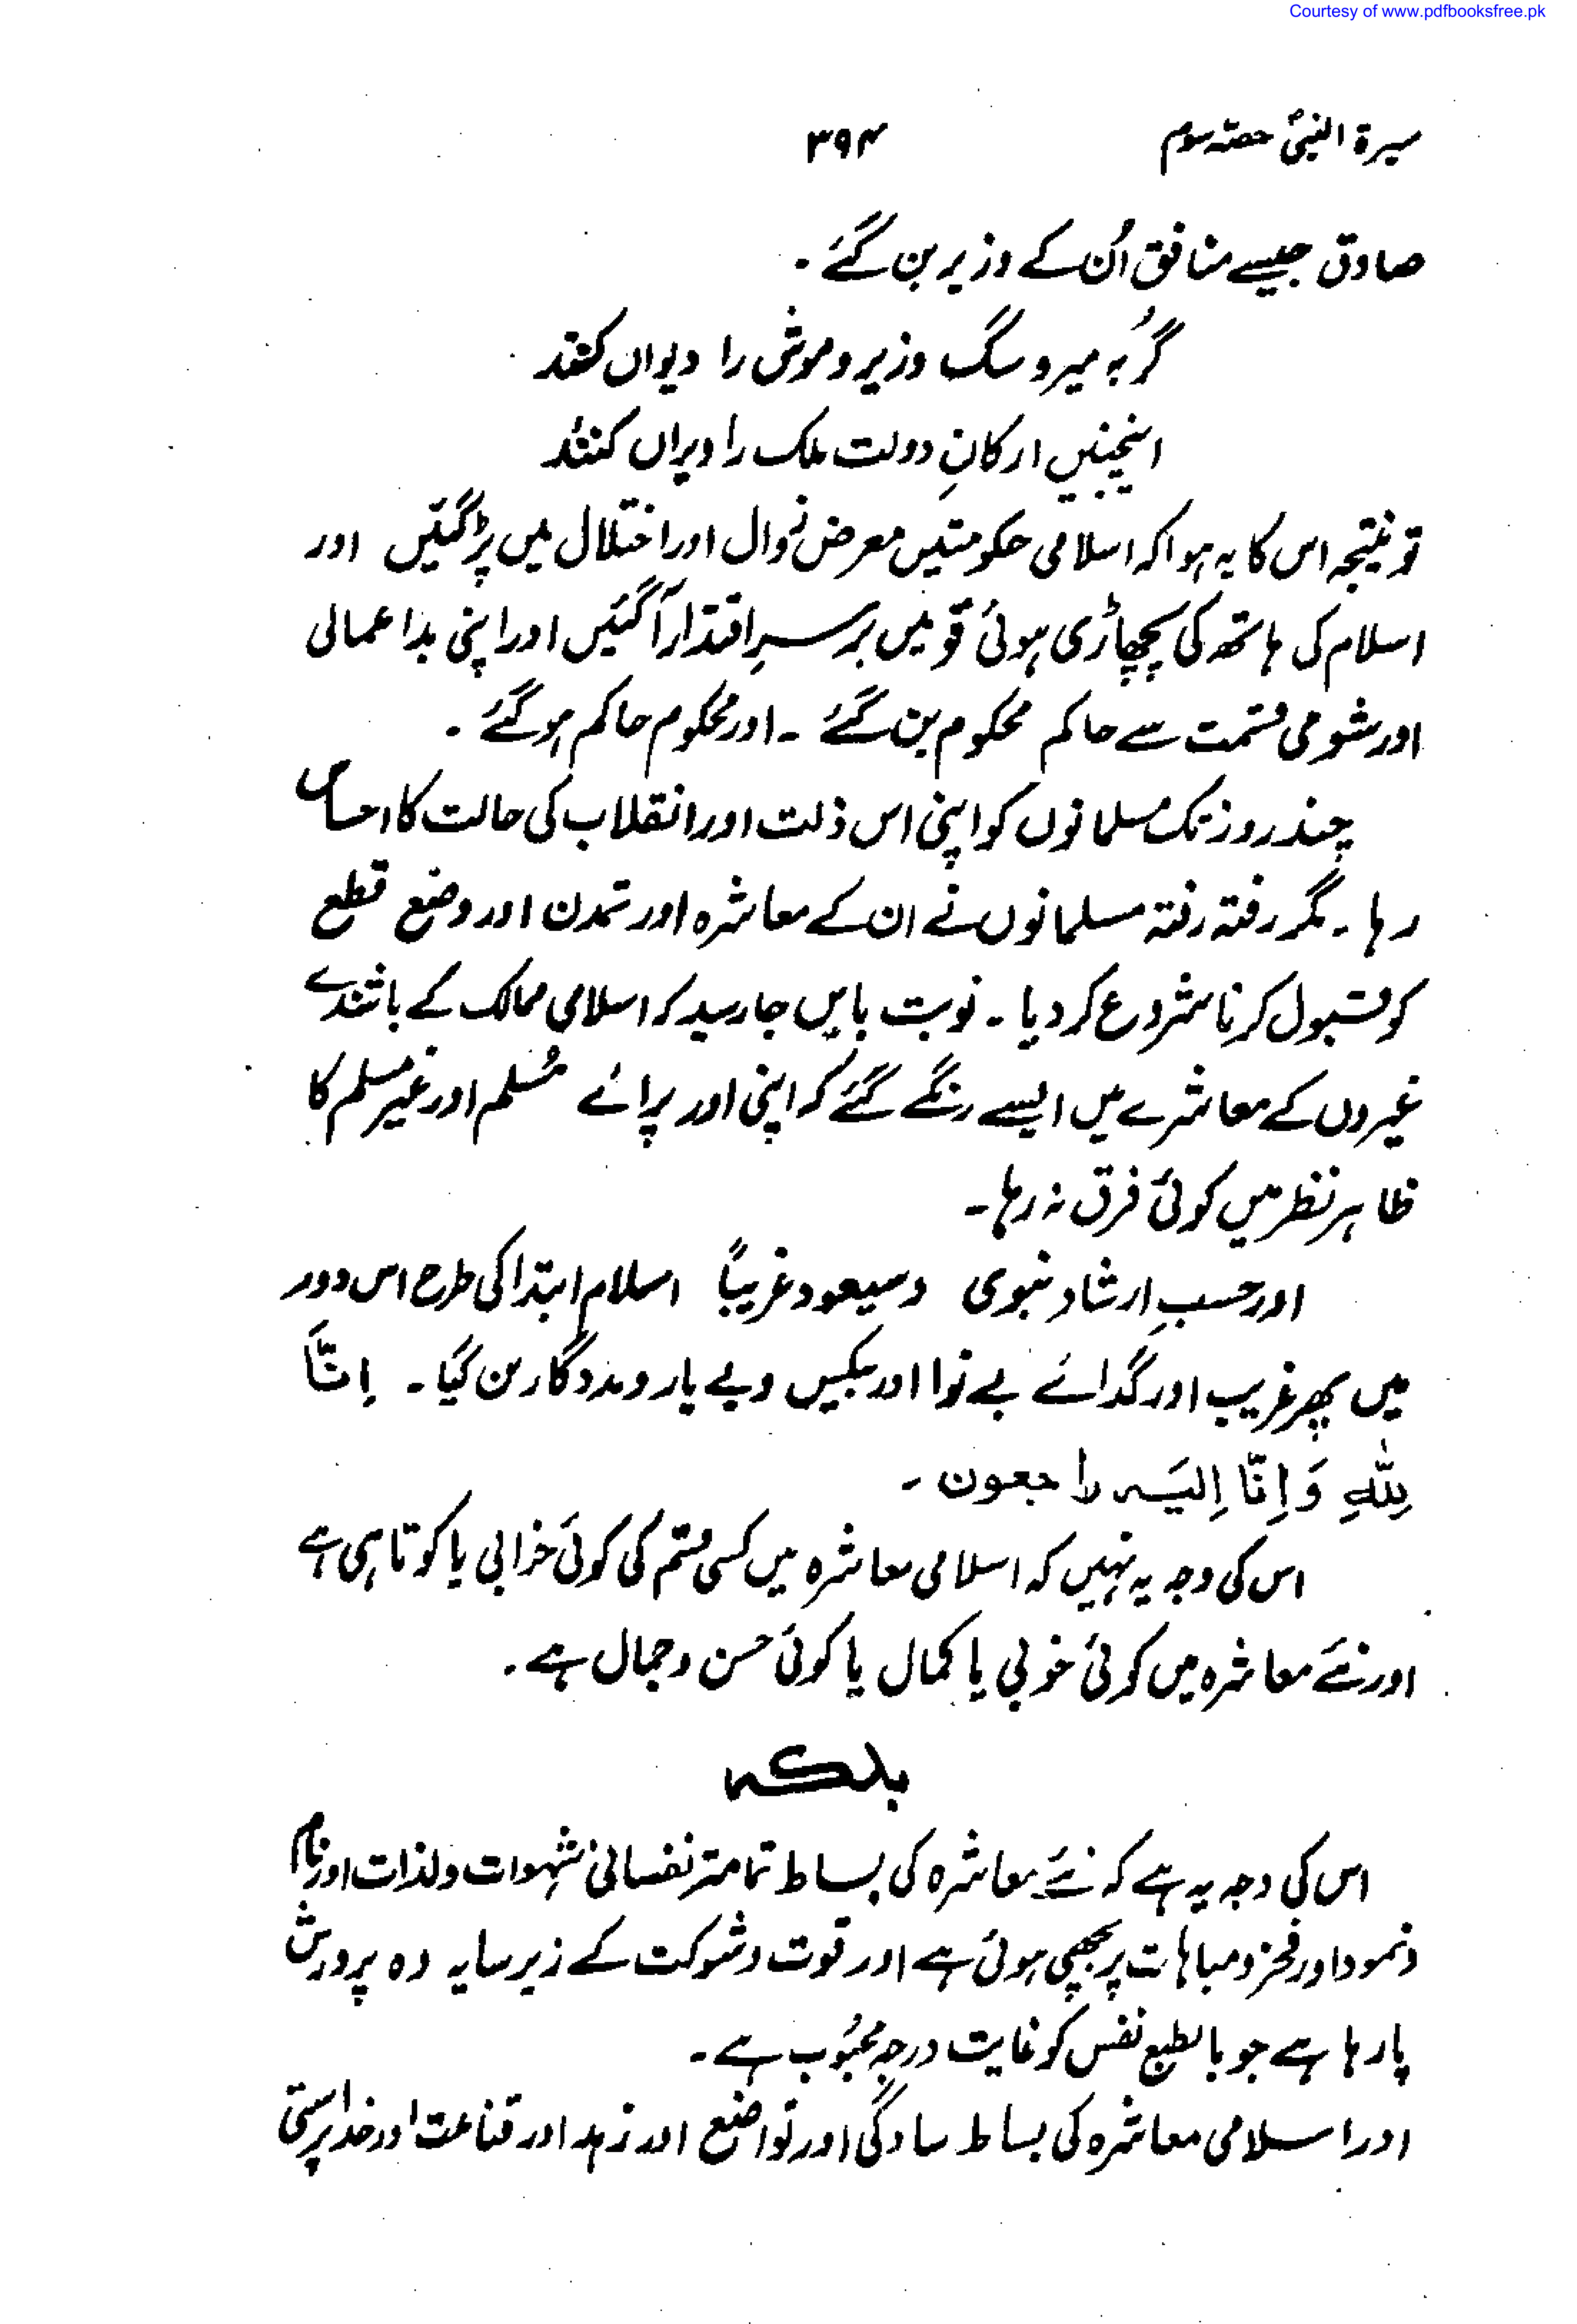 Courtesy of www.pdfbooksfree.pk
سیرۃ النبیؐ حصہ سوم ۳۹۴
صادق جیسے منافق اُن کے وزیر بن گئے ۔
گُربہ میر و سگ وزیر و موش را دیواں کنند
اینچنیں ارکانِ دولت ملک را ویراں کنند
تو نتیجہ اس کا یہ ہوا کہ اسلامی حکومتیں معرض زوال اور اختلال میں پڑ گئیں اور
اسلام کی ہاتھ کی پچھاڑی ہوئی قومیں برسرِ اقتدار آگئیں اور اپنی بداعمالی
اور شومی قسمت سے حاکم محکوم بن گئے ۔ اور محکوم حاکم ہو گئے ۔
چند روز تک مسلمانوں کو اپنی اس ذلت اور انقلاب کی حالت کا احساس
رہا ۔ مگر رفتہ رفتہ مسلمانوں نے ان کے معاشرہ اور تمدن اور وضع قطع
کو قبول کرنا شروع کر دیا ۔ نوبت بایں جا رسید کہ اسلامی ممالک کے باشندے
غیروں کے معاشرے میں ایسے رنگے گئے کہ اپنی اور پرائے مُسلم اور غیر مسلم کا
ظاہر نظر میں کوئی فرق نہ رہا ۔
اور حسبِ ارشاد نبوی وسیعود غریباً اسلام ابتدا کی طرح اس دور
میں پھر غریب اور گدائے بے نوا اور بیکس و بے یار و مددگار بن گیا ۔ اِنَّا
لِلّٰهِ وَ اِنَّا اِلیَہ راجعون ۔
اس کی وجہ یہ نہیں کہ اسلامی معاشرہ میں کسی قسم کی کوئی خرابی یا کوتاہی ہے
اور نئے معاشرہ میں کوئی خوبی یا کمال یا کوئی حسن و جمال ہے ۔
بلکہ
اس کی وجہ یہ ہے کہ نئے معاشرہ کی بساط تمامتر نفسانی شہوات و لذات اور نام
و نمود اور فخر و مباہات پر بچھی ہوئی ہے اور قوت و شوکت کے زیر سایہ وہ پرورش
پا رہا ہے جو بالطبع نفس کو غایت درجہ محبُوب ہے ۔
اور اسلامی معاشرہ کی بساط سادگی اور تواضع اور زہد اور قناعت اور خدا پرستی